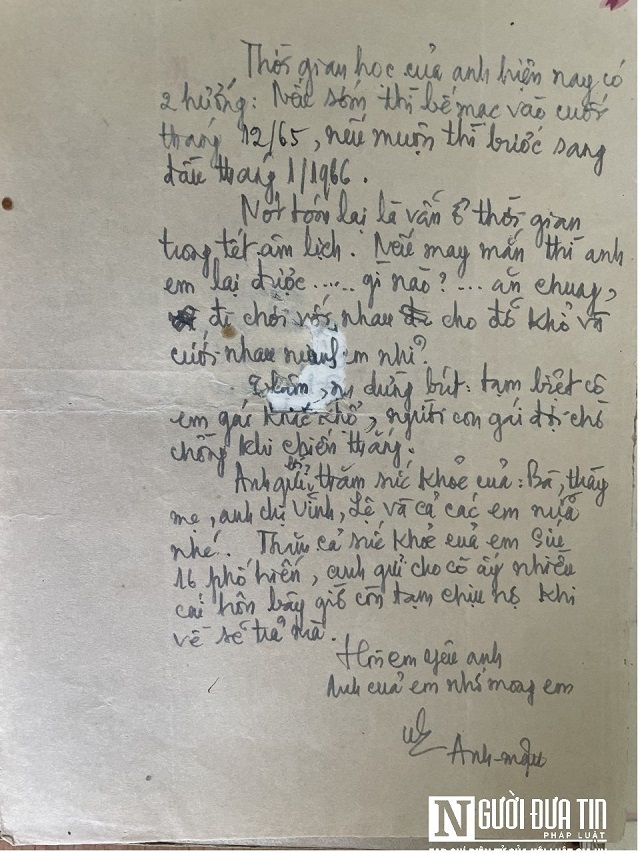 Thời gian học của anh hiện nay có
2 hướng: Nếu sớm thì bế mạc vào cuối
tháng 12/65, nếu muộn thì bước sang
đầu tháng 1/1966.
Nói tóm lại là vấn ổ thời gian
trong tết âm lịch. Nếu may mắn thì anh
em lại được ..... gì nào? ... ăn chung,
đi chơi với nhau cho đỡ khổ và
cưới nhau em nhỉ?
dừng bút. tạm biệt cô
em gái khắc khổ, người con gái đợi chờ
chồng khi chiến thắng.
Anh gửi lời thăm sức khỏe của: Bà, thầy
mẹ, anh chị Vinh, Lệ và cả các em nữa
nhé. Thăm cả sức khỏe của em
16 phố hiến, anh gửi cho cô ấy nhiều
cái hôn bây giờ còn tạm chịu nợ khi
về sẽ trả mà.
Hôn em yêu anh
Anh của em nhớ mong em
Anh
NGƯỜI ĐƯA TIN
PHÁP LUẬT